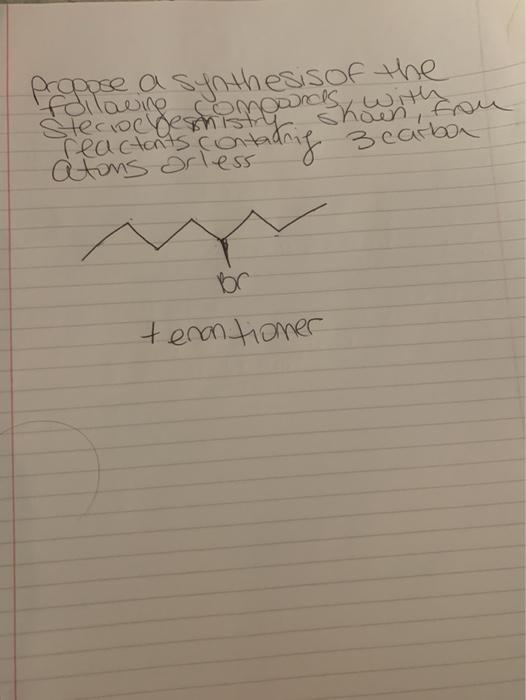 propose a synthesis of the
following compounds, with
steriochemistry shown, from
reactants containing 3 carbon
atoms or less
Br
+ enontiomer